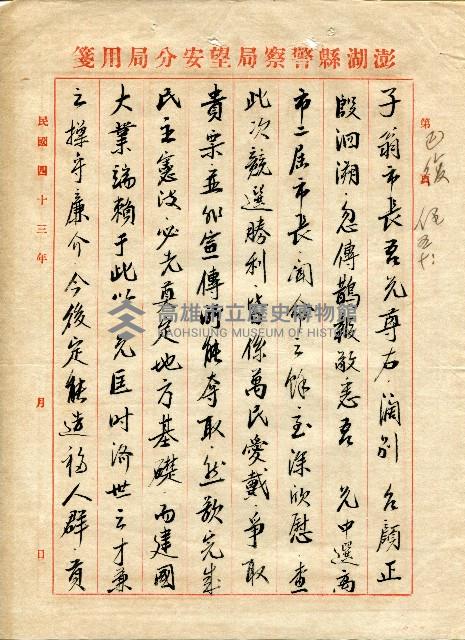 澎湖縣警察局望安分局用箋
第 頁
已復
子翁市長吾兄尊右濶別 台顏正
殷洄溯忽傳鵲報敬悉吾 兄中選高
市二屆市長聞命之餘至深欣慰查
此次競選勝利皆係萬民愛戴爭取
貴票並非宣傳所能奪取然欲完成
民主憲政必先奠定地方基礎而建國
大業端賴于此以 兄匡时济世之才兼
之操守廉介今後定能造福人群負
民國四十三年 月 日
高雄市立歷史博物館
KAOHSIUNG MUSEUM OF HISTORY